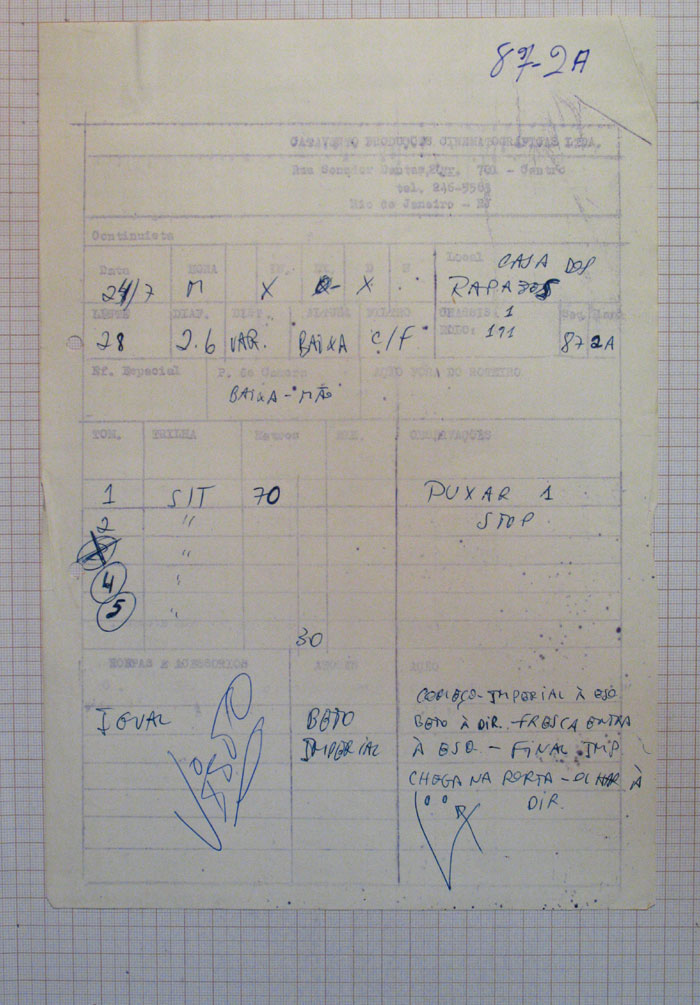 87-2A
CATAVENTO PRODUÇÕES CINEMATOGRÁFICAS LTDA.
Rua Senador Dantas, 701 - Centro
tel. 246-5563
Rio de Janeiro - RJ
Continuista
Data HORA Local CASA DOS
24/7 M X X RAPAZES
LENTE DIAF. DIST. ALTURA FILTRO CHASSIS: 1 Seq.
28 2.6 VAR. BAIXA C/F ROLO: 191 87 2A
Ef. Especial P. de Camera AÇÃO FORA DO ROTEIRO
BAIXA-MÃO
TOM. TRILHA Metros OBSERVAÇÕES
1 SIT 70 PUXAR 1
2 " STOP
"
4 "
5 "
30
ROUPAS E ACESSORIOS AÇÃO
IGUAL BETO COMEÇO-IMPERIAL À ESQ
IMPERIAL BETO À DIR. FRESCA ENTRA
À ESQ - FINAL IMP
CHEGA NA PORTA - OLHAR À
DIR.
VISTO